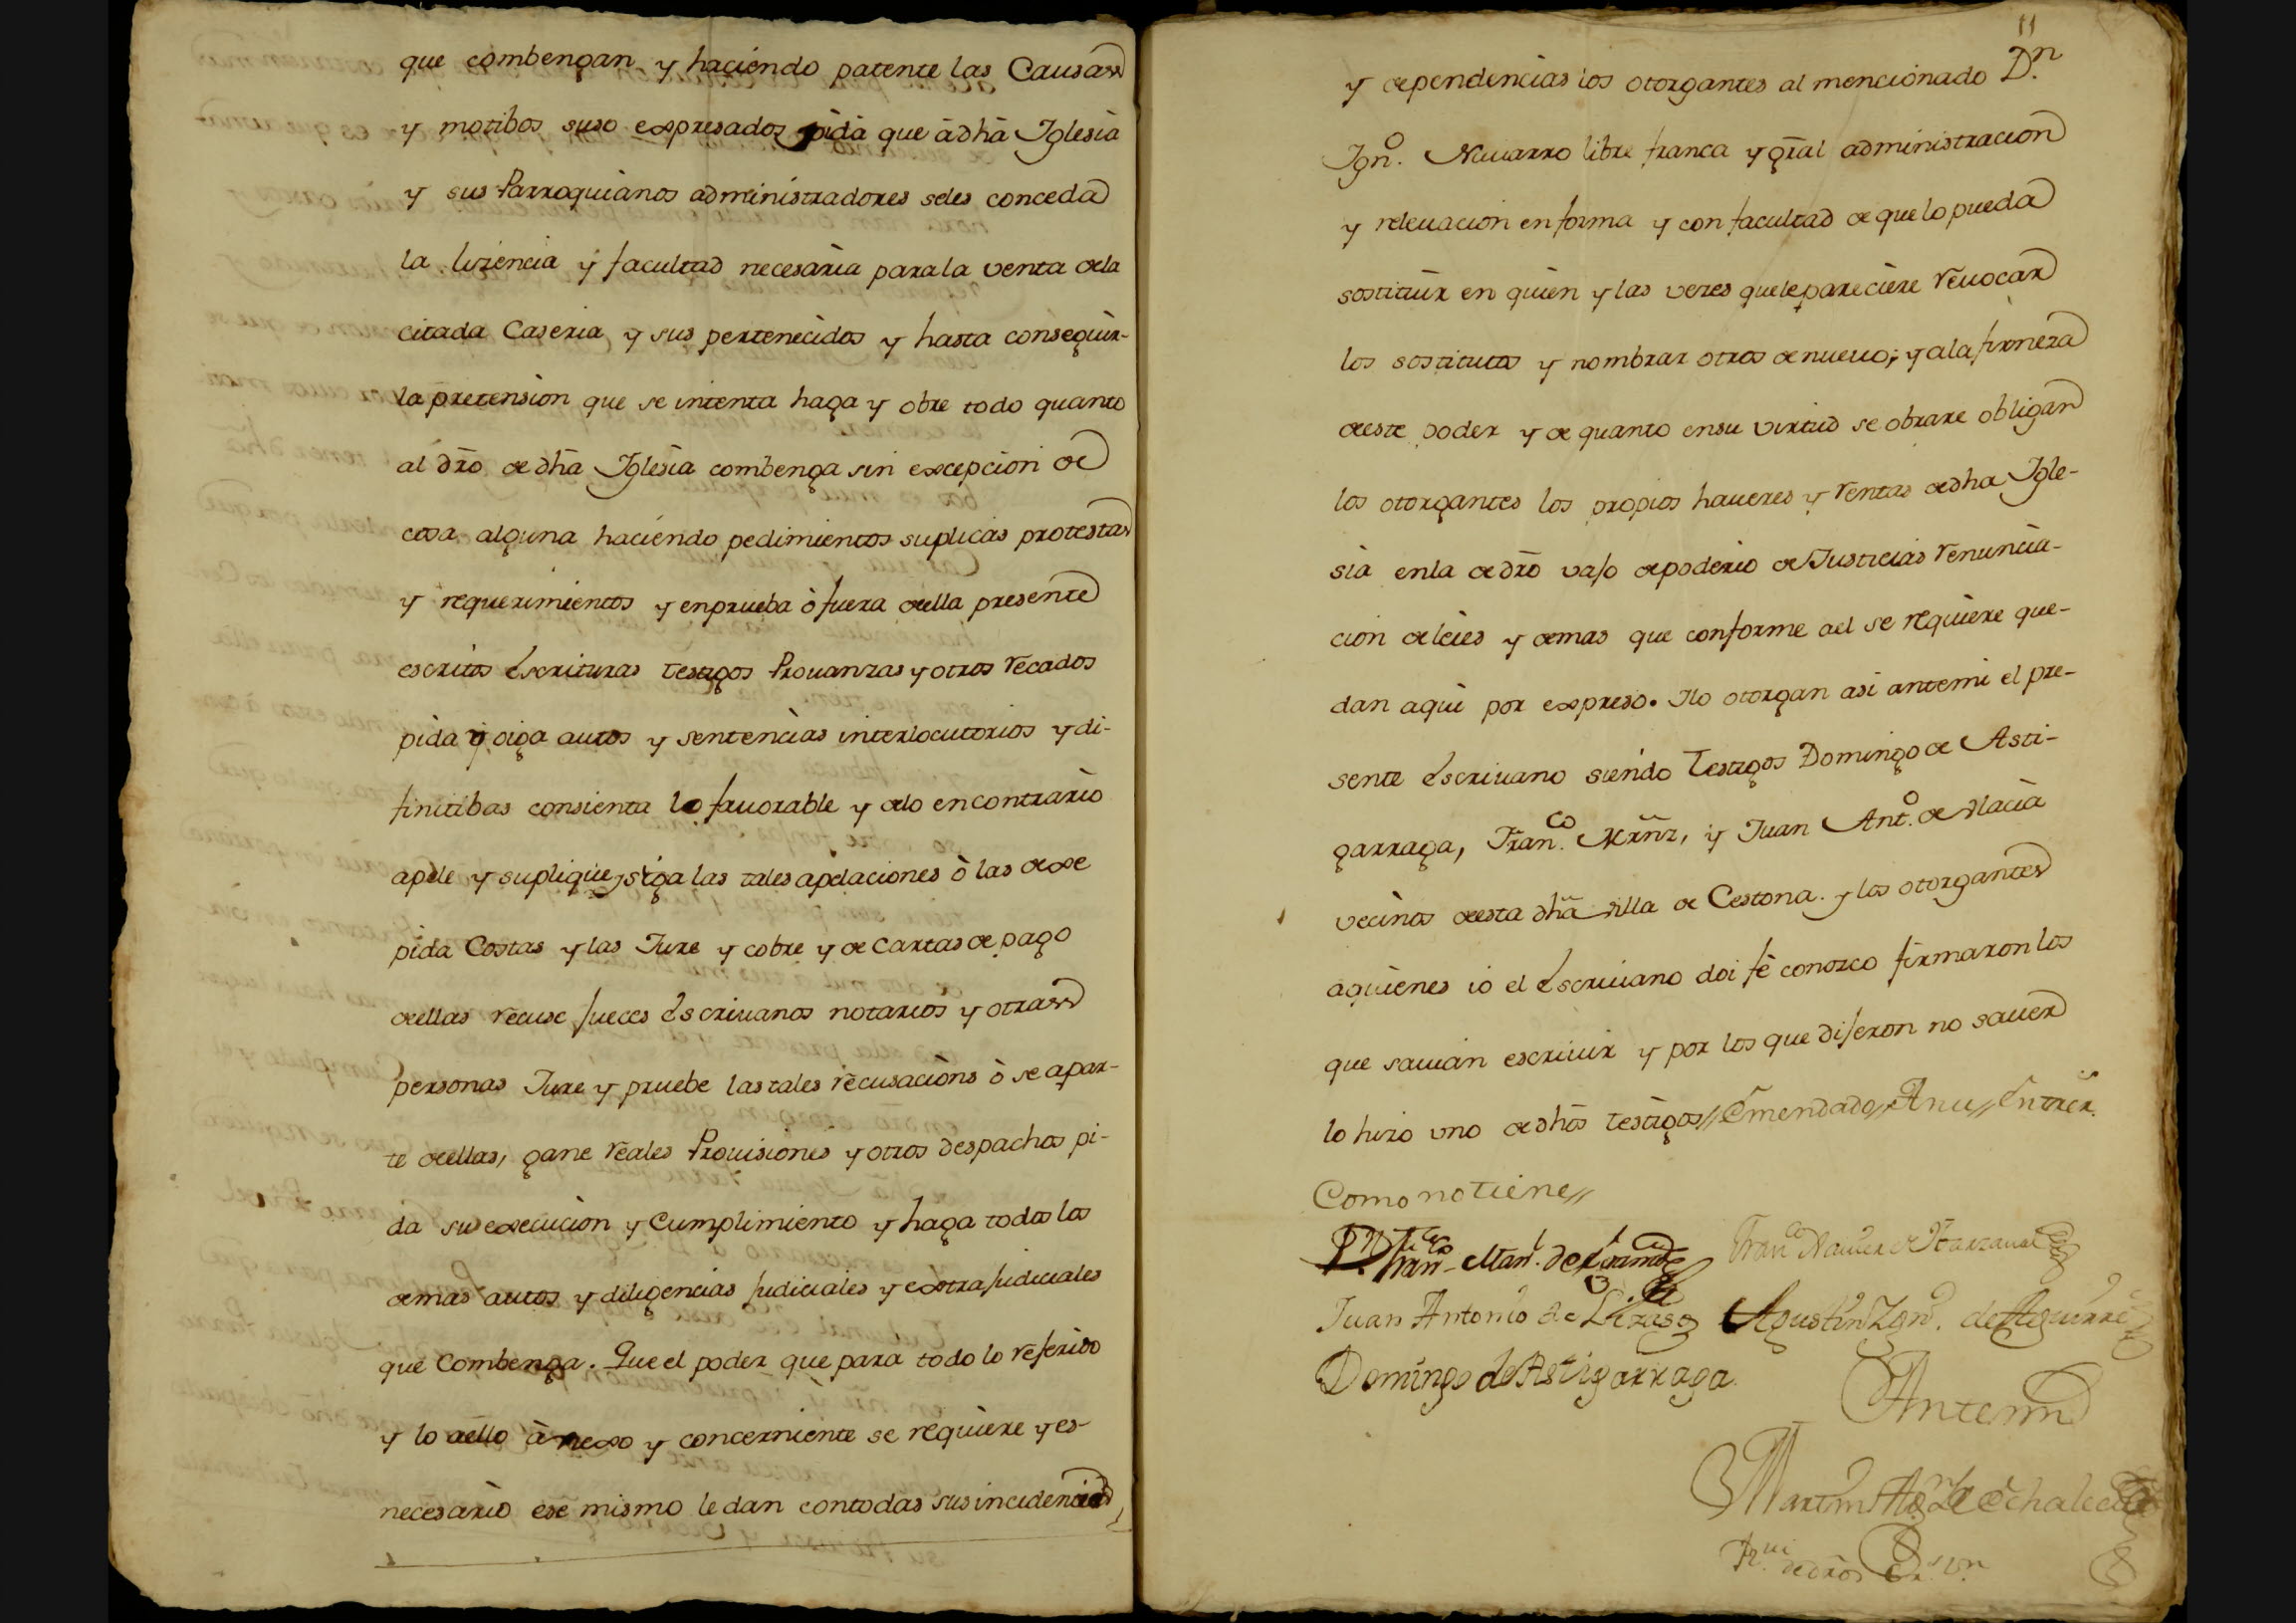 que combengan y haciendo patente las Causas
y motibos suso expresados pida que à dhã Iglesia
y sus Parroquianos administradores seles conceda
la lizencia y facultad necesaria parala venta dela
citada Caseria y sus pertenecidos y hasta conseguir-
la pretension que se intenta haga y obre todo quanto
al drõ de dhã Iglesia combenga sin excepcion de
cosa alguna haciendo pedimientos suplicas protestas
y requerimientos y enprueba ò fuera della presente
escritos Escrituras testigos Provanzas y otros recados
pida y oiga autos y sentencias interlocutorios y di-
finitibas consienta lo favorable y delo encontrario
apele y suplique, siga las tales apelaciones ò las dexe
pida Costas y las Jure y cobre y de cartas de pago
dellas recuse Jueces Escrivanos notarios y otras
personas Jure y pruebe las tales recusacions ò se apar-
te dellas, gane reales Provisiones y otros despachos pi-
da su execucion y Cumplimiento y haga todos los
demas autos y diligencias Judiciales y extraJudiciales
que Combenga. Que el poder que para todo lo referido
y lo aello ànexo y concerniente se requiere y es
necesario ese mismo le dan contodas susincidencias
11
y dependencias los otorgantes al mencionado Dn.
Igno. Navarro libre franca y grãl administracion
y relevacion en forma y con facultad de que lo pueda
sostituir en quien y las vezes quele pareciere revocar
los sostitutos y nombrar otros de nuevo; y ala firmeza
deeste poder y de quanto ensu virtud se obrare obligan
los otorgantes los propios haveres y rentas dedha Igle-
sia enla dedrõ vajo depoderio de Justicias renuncia-
cion deleies y demas que conforme ael se requiere que-
dan aqui por expreso. Ilo otorgan asi antemi el pre-
sente Escrivano siendo testigos Domingo de Asti-
garraga, Franco. Mrñz, y Juan Anto. de Alacia
vecinos deesta dhã villa de Cestona. y los otorgantes
aquienes io el Escrivano doi fè conozco firmaron los
que savian escrivir y por los que dijeron no saver
lo hizo uno de dhõs testigos // Emendado, Anu // Entrer.
Como no tiene //
Dn. Franco. Man. de
Franco Xavier de Itarzaval
Juan Antonio de Lizaso Agustin Ygno. de Aguirre
Domingo de Astigarraga
Antemi
Martin